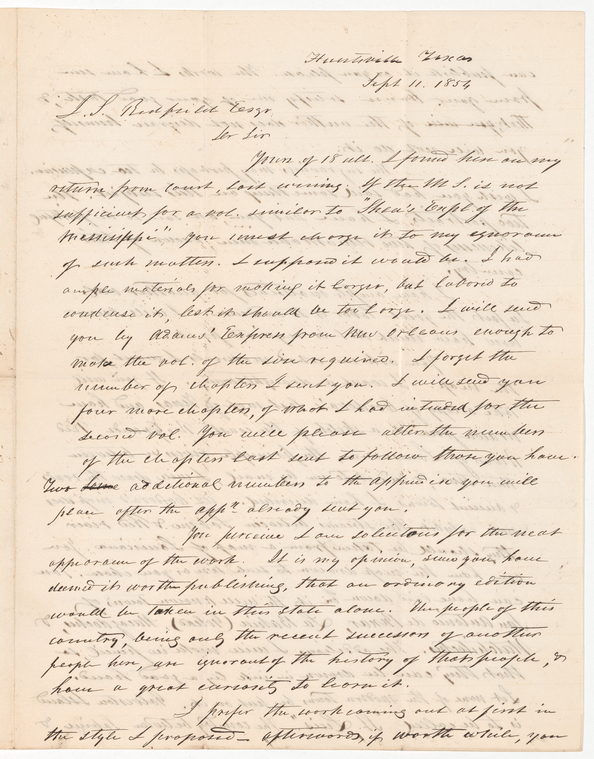 Huntsville Texas
Sept 11. 1854
J. S. Redfield Esqr
Der Sir
Yours of 18 ult. I found here on my
return from court, last evening. If the M S. is not
sufficient for a vol. similar to "Shea's Expl of the
Mississippi" you must charge it to my ignorance
of such matters. I supposed it would be. I had
ample materials for making it larger, but labored to
condense it, lest it should be too large. I will send
you by Adams' Express from New Orleans enough to
make the vol. of the size required. I forget the
number of chapters I sent you. I will send you
four more chapters, of what I had intended for the
second vol. You will please alter the numbers
of the chapters last sent to follow those you have.
Two additional numbers to the appendix you will
place after the appx already sent you.
You perceive I am solicitous for the neat
appearance of the work. It is my opinion, since you have
deemed it worth publishing, that an ordinary edition
would be taken in this state alone. The people of this
country, being only the recent successors of another
people here, are ignorant of the history of that people, &
have a great curiosity to learn it.
I prefer the work coming out at first in
the style I proposed — afterwards, if worth while, you